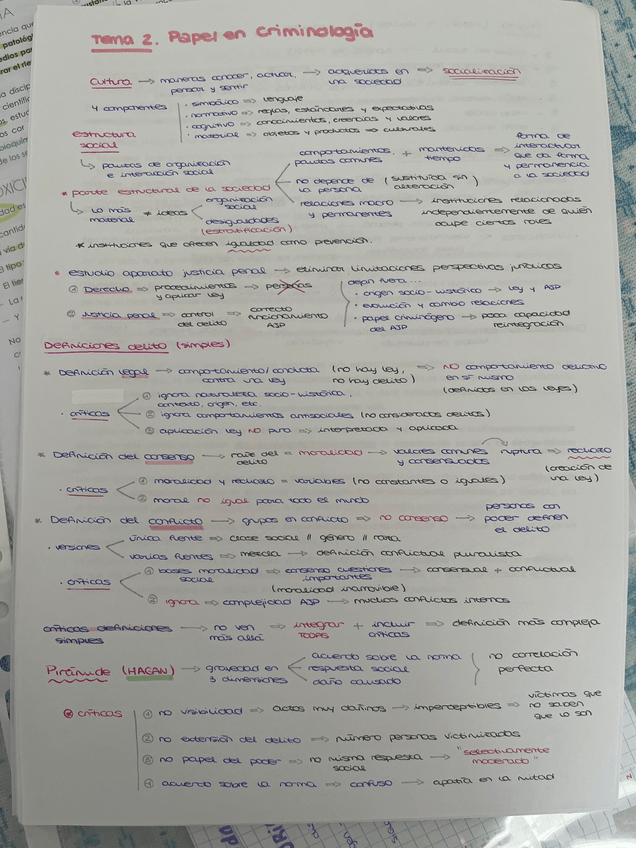 Tema 2. Papel en criminología
Cultura → maneras conocer, actuar, pensar y sentir → adquiridas en una sociedad ⇒ socialización
4 componentes
· simbólico ⇒ lenguaje
· normativo ⇒ reglas, estándares y expectativas
· cognitivo ⇒ conocimientos, creencias y valores
· material ⇒ objetos y productos ⇒ culturales
estructura social
↳ pautas de organización e interacción social
comportamientos, pautas comunes + mantenidos tiempo ⇒ forma de interactuar que da forma y permanencia a la sociedad
no depende de la persona (sustituida sin alteración)
relaciones macro y permanentes → instituciones relacionadas independientemente de quién ocupe ciertos roles
* parte estructural de la sociedad
↳ lo más material ≠ ideas
organización social
desigualdades (estratificación)
* instituciones que ofrecen igualdad como prevención.
• estudio aparato justicia penal → eliminar limitaciones perspectivas jurídicas
① Derecho ⇒ procedimientos y aplicar ley → personas
② Justicia penal ⇒ control del delito → correcto funcionamiento AJP
dejan fuera...
· origen socio-histórico → ley y AJP
· evolución y cambio relaciones
· papel criminógeno del AJP → poca capacidad reintegración
Definiciones delito (simples)
* Definición legal → comportamiento/conducta contra una ley (no hay ley, no hay delito) ⇒ NO comportamiento delictivo en sí mismo (definidos en las leyes)
· críticas
① ignora naturaleza socio-histórica, contexto, origen, etc.
② ignora comportamientos antisociales (no considerados delitos)
③ aplicación ley NO pura ⇒ interpretada y aplicada
* Definición del consenso → raíz del delito = moralidad → valores comunes y consensuados ruptura ⇒ rechazo (creación de una ley)
· críticas
① moralidad y rechazo = variables (no constantes o iguales)
② moral no igual para todo el mundo
* Definición del conflicto → grupos en conflicto ⇒ no consenso → personas con poder definen el delito
· versiones
única fuente ⇒ clase social // género // raza
varias fuentes ⇒ mezcla → definición conflictual pluralista
· críticas
① bases moralidad social ⇒ consenso cuestiones importantes → consensual + conflictual
(moralidad inamovible)
② ignora ⇒ complejidad AJP → muchos conflictos internos
críticas definiciones simples → no ven más allá ⇒ integrar TODAS + incluir críticas ⇒ definición más compleja
Pirámide (HAGAN) → gravedad en 3 dimensiones
acuerdo sobre la norma
respuesta social
daño causado
no correlación perfecta
críticas
① no visibilidad ⇒ actos muy dañinos → imperceptibles ⇒ víctimas que no saben que lo son
② no extensión del delito ⇒ número personas victimizadas
③ no papel del poder ⇒ no misma respuesta social → "selectivamente moderado"
④ acuerdo sobre la norma ⇒ confuso → apatía en la mitad